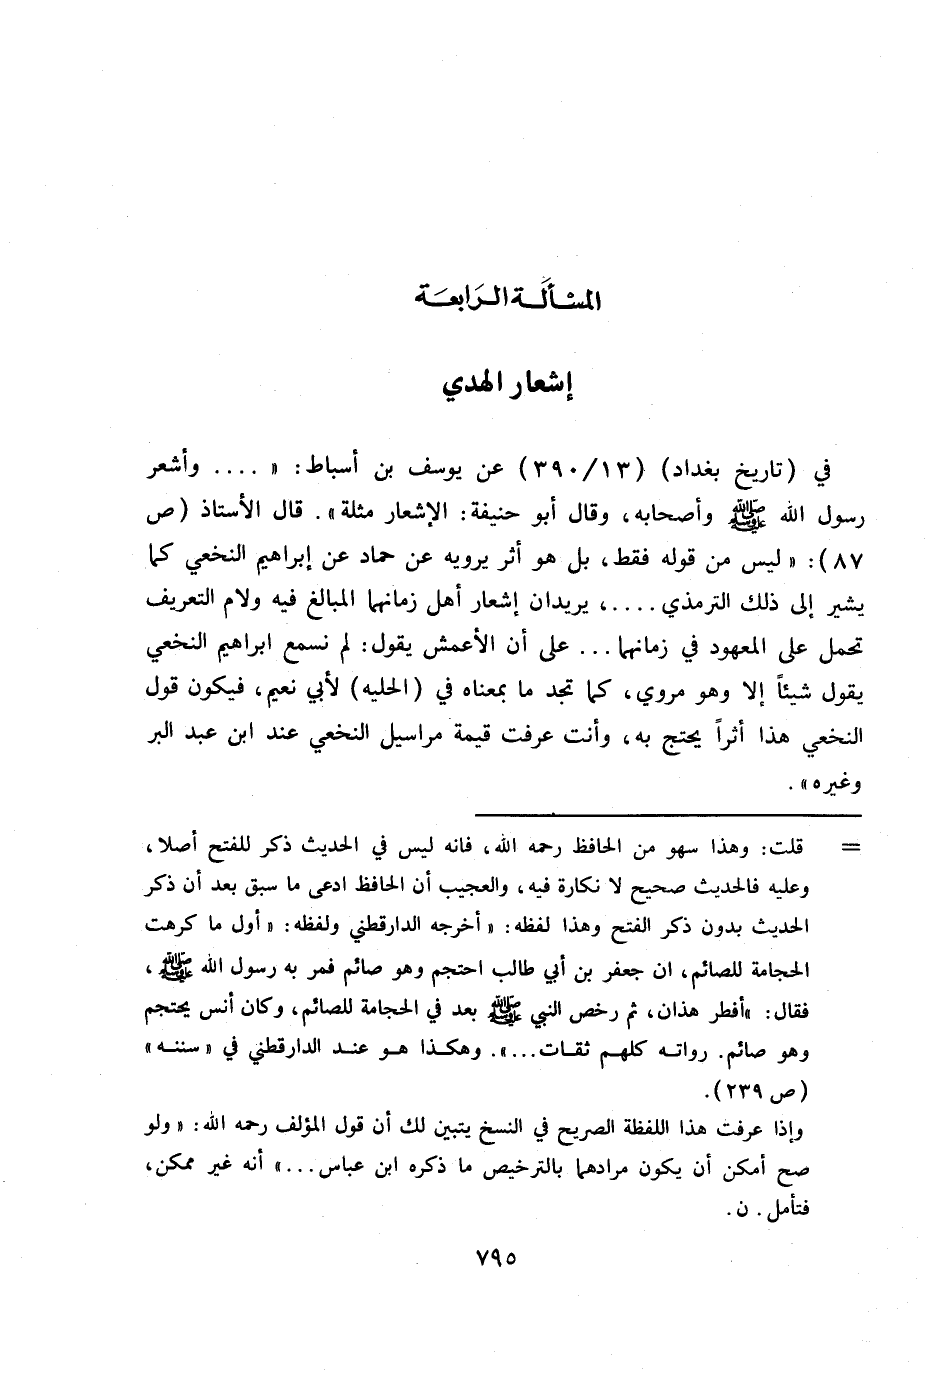 المسْألَة الرَابعَة
إشعار الهدي
في (تاريخ بغداد) (٣٩٠/١٣) عن يوسف بن أسباط: « .... وأشعر
رسول الله ﷺ وأصحابه، وقال أبو حنيفة: الإشعار مثلة». قال الأستاذ (ص
٨٧): « ليس من قوله فقط، بل هو أثر يرويه عن حماد عن إبراهيم النخعي كما
يشير إلى ذلك الترمذي ....، يريدان إشعار أهل زمانهما المبالغ فيه ولام التعريف
تحمل على المعهود في زمانهما ... على أن الأعمش يقول: لم نسمع ابراهيم النخعي
يقول شيئاً إلا وهو مروي، كما تجد ما بمعناه في (الحليه) لأبي نعيم، فيكون قول
النخعي هذا أثراً يحتج به، وأنت عرفت قيمة مراسيل النخعي عند ابن عبد البر
وغيره» .
= قلت: وهذا سهو من الحافظ رحمه الله، فانه ليس في الحديث ذكر للفتح أصلا،
وعليه فالحديث صحيح لا نكارة فيه، والعجيب أن الحافظ ادعى ما سبق بعد أن ذكر
الحديث بدون ذكر الفتح وهذا لفظه: « أخرجه الدارقطني ولفظه: « أول ما كرهت
الحجامة للصائم، ان جعفر بن أبي طالب احتجم وهو صائم فمر به رسول الله ﷺ ،
فقال: «أفطر هذان، ثم رخص النبي ﷺ بعد في الحجامة للصائم، وكان أنس يحتجم
وهو صائم. رواته كلهم ثقات...». وهكذا هو عند الدارقطني في « سننه »
(ص ٢٣٩).
وإذا عرفت هذا اللفظة الصريح في النسخ يتبين لك أن قول المؤلف رحمه الله: « ولو
صح أمكن أن يكون مرادهما بالترخيص ما ذكره ابن عباس...» أنه غير ممكن،
فتأمل . ن .
٧٩٥